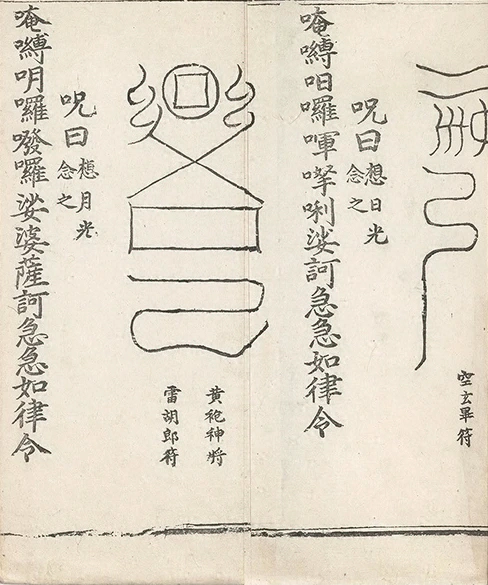 空玄畢符
呪曰
想日光
念之
唵嚩呬囉㖇㘄唎娑訶急急如律令
黃袍神將
雷胡郎符
呪曰
想月光
念之
唵嚩呐囉囉娑婆薩訶急急如律令